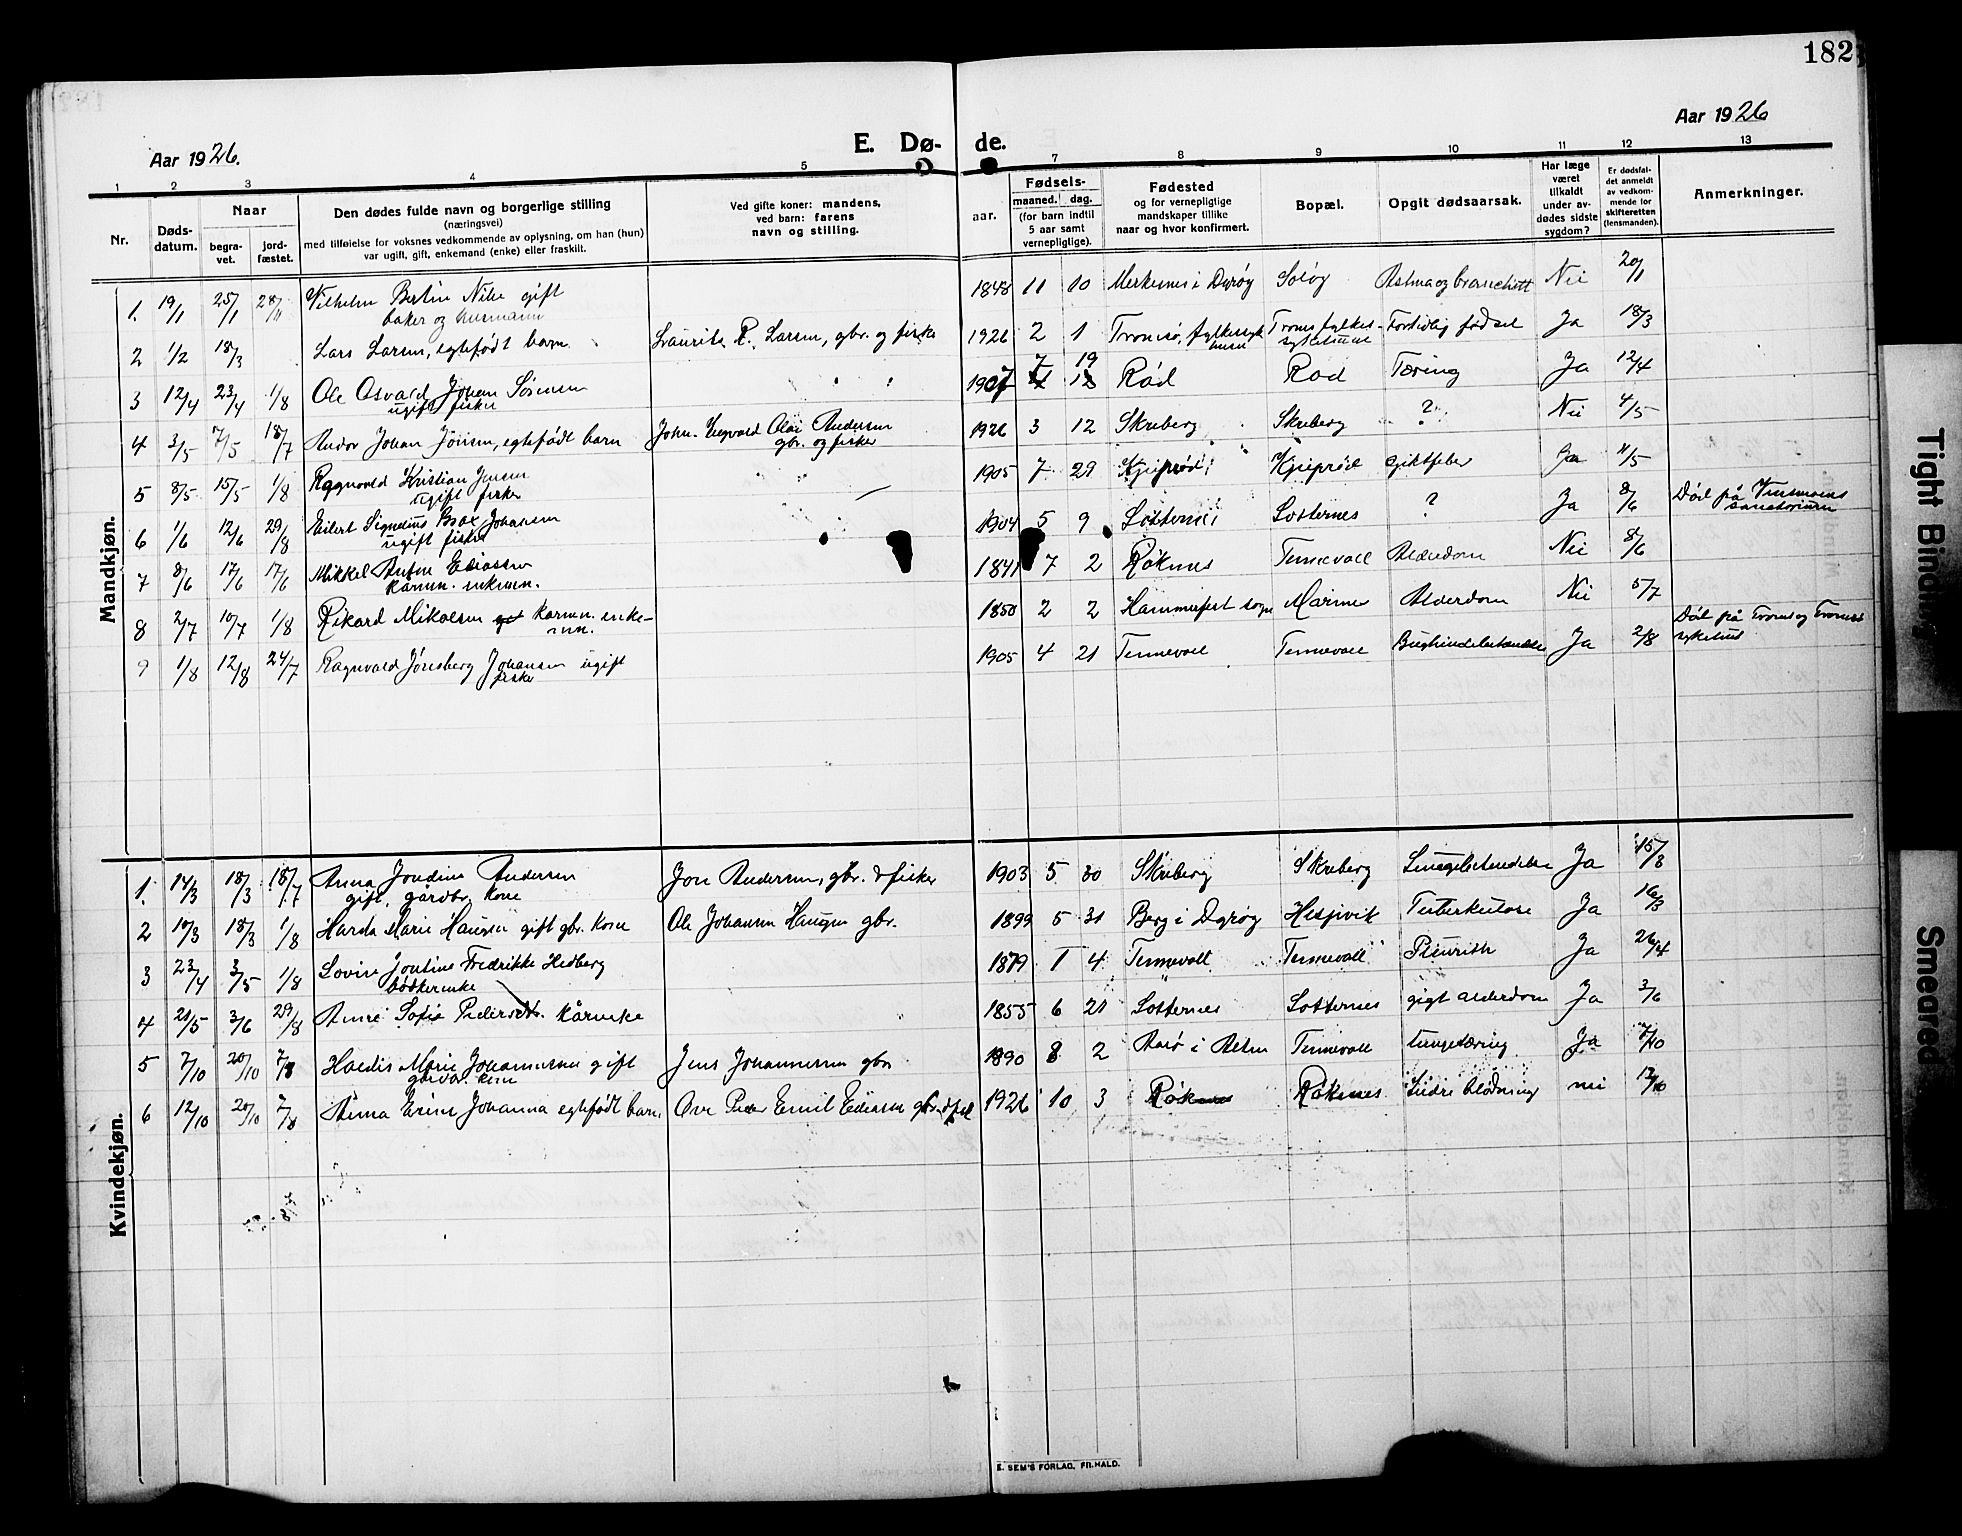 182
Aar 1926.
E. Dø-
de.
Aar 1926
1 2 3 4 5 7 8 9 10 11 12 13
Nr.
Døds-
datum.
Naar
begra-
vet.
jord-
fæstet.
Den dødes fulde navn og borgerlige stilling
(næringsvei)
med tilføielse for voksnes vedkommende av oplysning, om han (hun)
var ugift, gift, enkemand (enke) eller fraskilt.
Ved gifte koner: mandens,
ved barn: farens
navn og stilling.
aar.
Fødsels-
maaned. dag.
(for barn indtil
5 aar samt
vernepligtige).
Fødested
og for vernepligtige
mandskaper tillike
naar og hvor konfirmert.
Bopæl.
Opgit dødsaarsak.
Har læge
været
tilkaldt
under av-
dødes sidste
sygdom?
Er dødsfal-
det anmeldt
av vedkom-
mende for
skifteretten
(lensmanden).
Anmerkninger.
Mandkjøn.
1. 19/1 25/1 Vilhelm Bertin gift 1848 11 10 i Dyrøy Nei 20/1
baker og husmann
2 1/2 18/3 Lars Larsen, egtefødt barn Laurits R. Larsen, gbr. og fisker 1926 2 1 Tromsø, Troms fylkes- Fortidlig fødsel Ja 18/3
sykehus
7 19
3 12/4 23/4 1/8 Ole Osvard Johan Sörensen 1907 Rød Rød Tæring Ja 12/4
ugift fisker
4 3/5 7/5 18/7 Andor Johan Jönsen, egtefødt barn John Ingvald Olai Andersen 1926 3 12 Skreberg Skreberg ? Nei 4/5
gbr. og fisker
5 8/5 15/5 1/8 Ragnvald Kristian Jensen 1905 7 29 Kjeiprød Kjeiprød Giktfeber Ja 11/5
ugift fisker
6 1/6 12/6 29/8 Eilert Johansen 1904 5 9 Lotternes Lotternes ? Ja 8/6 Död på
ugift fisker sanatorium
7 8/6 17/6 17/6 Mikkel Eliassen 1841 7 2 Røknes Tennevoll Alderdom Nei 8/6
kårmn. enkemn.
8 2/7 10/7 1/8 Rikard Mikalsen kårmn. enke- 1850 2 2 Hammerfest sogn Alderdom Nei 5/7
mn.
9 1/8 12/8 24/7 Ragnvald Jönsberg Johansen ugift 1905 4 21 Tennevoll Tennevoll Bughindebetændelse Ja 2/8 Död på Tromsø
fisker sykehus
Kvindekjøn.
1. 14/3 18/3 18/7 Anna Jondine Andersen Jon Andersen, gbr. & fisker 1903 5 30 Skreberg Skreberg Lungebetændelse Ja 15/3
gift, gårdbr. kone
2 10/3 18/3 1/8 Harda Marie Haugen gift gbr. kone Ole Johansen Haugen gbr. 1899 5 31 Berg i Dyrøy Hesjevik Tuberkulose Ja 16/3
3 23/4 3/5 1/8 Lovise Jontine Fredrikke Hedberg 1879 1 4 Tennevoll Tennevoll Pleurith Ja 26/4
bødkerenke
4 21/5 3/6 29/8 Anne Sofie Pedersdt. kårenke 1855 6 21 Lotternes Lotternes gigt alderdom Ja 3/6
5 7/10 20/10 7/8 Haldis Marie Johannessen gift Jens Johannessen gbr 1890 8 2 i Alten Tennevoll lungetæring Ja 7/10
gårdbr. kone
6 12/10 20/10 7/8 Anna Erine Johanna egtefødt barn Ove Peder Emil Eliassen 1926 10 3 Røknes Røknes Indre blødning nei 13/10
E. SEM'S FORLAG, FR.HALD.
Tight Binding
Smeared